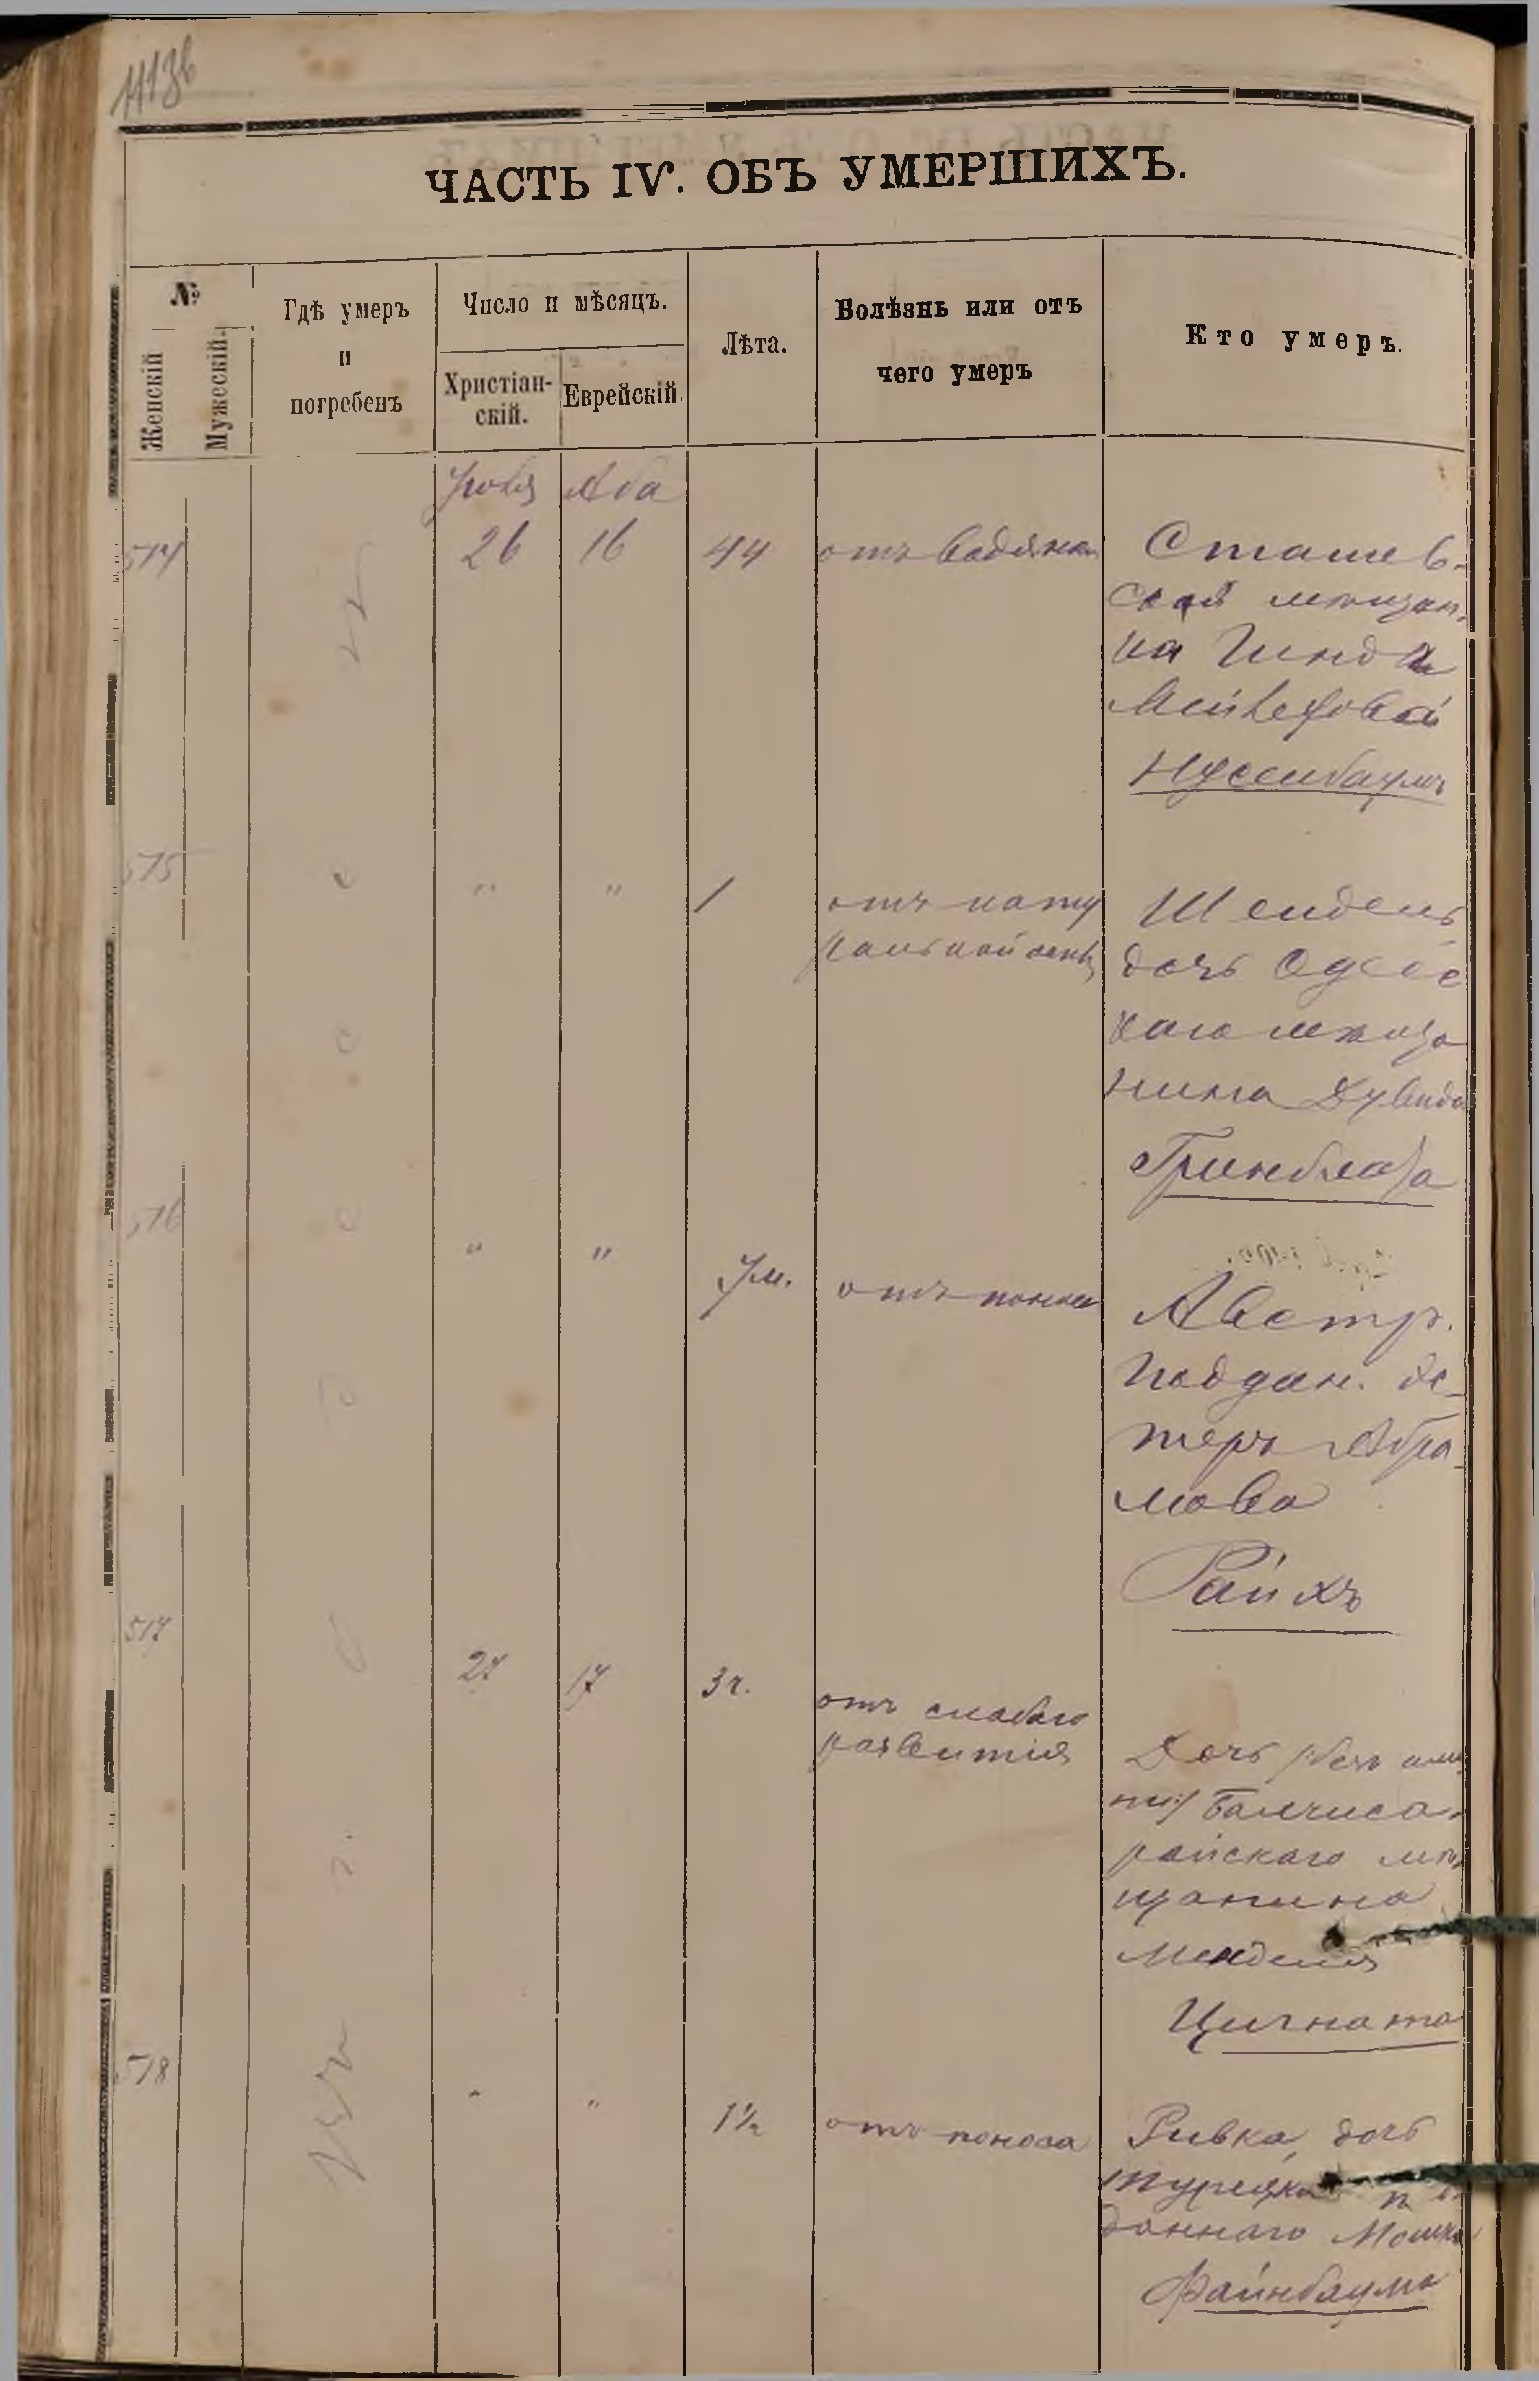 1136
ЧАСТЬ IV. ОБЪ УМЕРШИХЪ.
№
Женскій
Мужескій.
Гдѣ умеръ
и
погребенъ
Число и мѣсяцъ.
Христіан-
скій.
Еврейскій.
Лѣта.
Болѣзнь или отъ
чего умеръ
Кто умеръ.
Іюля Аба
514 26 16 44 отъ водянки Сташев-
ская мѣщан-
ка Гинда
Мейеровой
Нуссибаумъ
515 " " 1 отъ нату
ральной оспы Шейдель
дочь Одесс
каго мѣща
нина Дувида
Гринблата
516 " " 7м. отъ поноса Австр.
поддан. Эс-
теръ Абра-
мова
Райхъ
517 27 17 3ч. отъ слабаго
развитія Дочь /:безъ име
ни:/ Бахчиса-
райскаго мѣ-
щанина
Менделя
Цигната
518 " " 1½ отъ поноса Ривка, дочь
Турецка
даннаго Мошка
Файнбаума